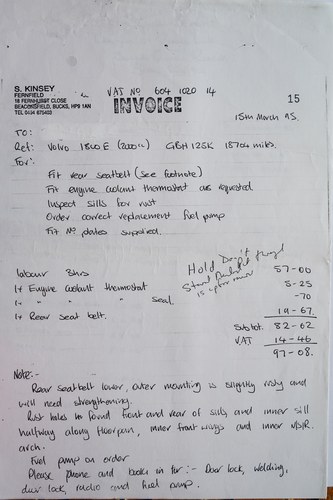 S. KINSEY
FERNFIELD
18 FERNHURST CLOSE
BEACONSFIELD, BUCKS, HP9 1AN
TEL 0494 675403
VAT No 604 1020 14
INVOICE
15
15th March 95.
TO:
Ref: Volvo 1800E (2000cc) GBH 125K 18704 miles.
For:
Fit rear seatbelt (see footnote)
Fit engine coolant thermostat as requested.
Inspect sills for rust
Order correct replacement fuel pump
Fit No plates supplied.
Hold Don't
Labour 3hrs 57-00
1 x Engine coolant thermostat 5-25
1 x " " " seal -70
1 x Rear seat belt. 19-67
Sub tot. 82-62
VAT 14-46
97-08.
Note:-
Rear seatbelt lower, outer mounting is slightly rusty and
will need strengthening.
Rust holes to found front and rear of sills and inner sill
halfway along floorpan, inner front wings and inner N/S/R.
arch.
Fuel pump on order
Please phone and book in for:- Door lock, welding,
door lock, radio and fuel pump.